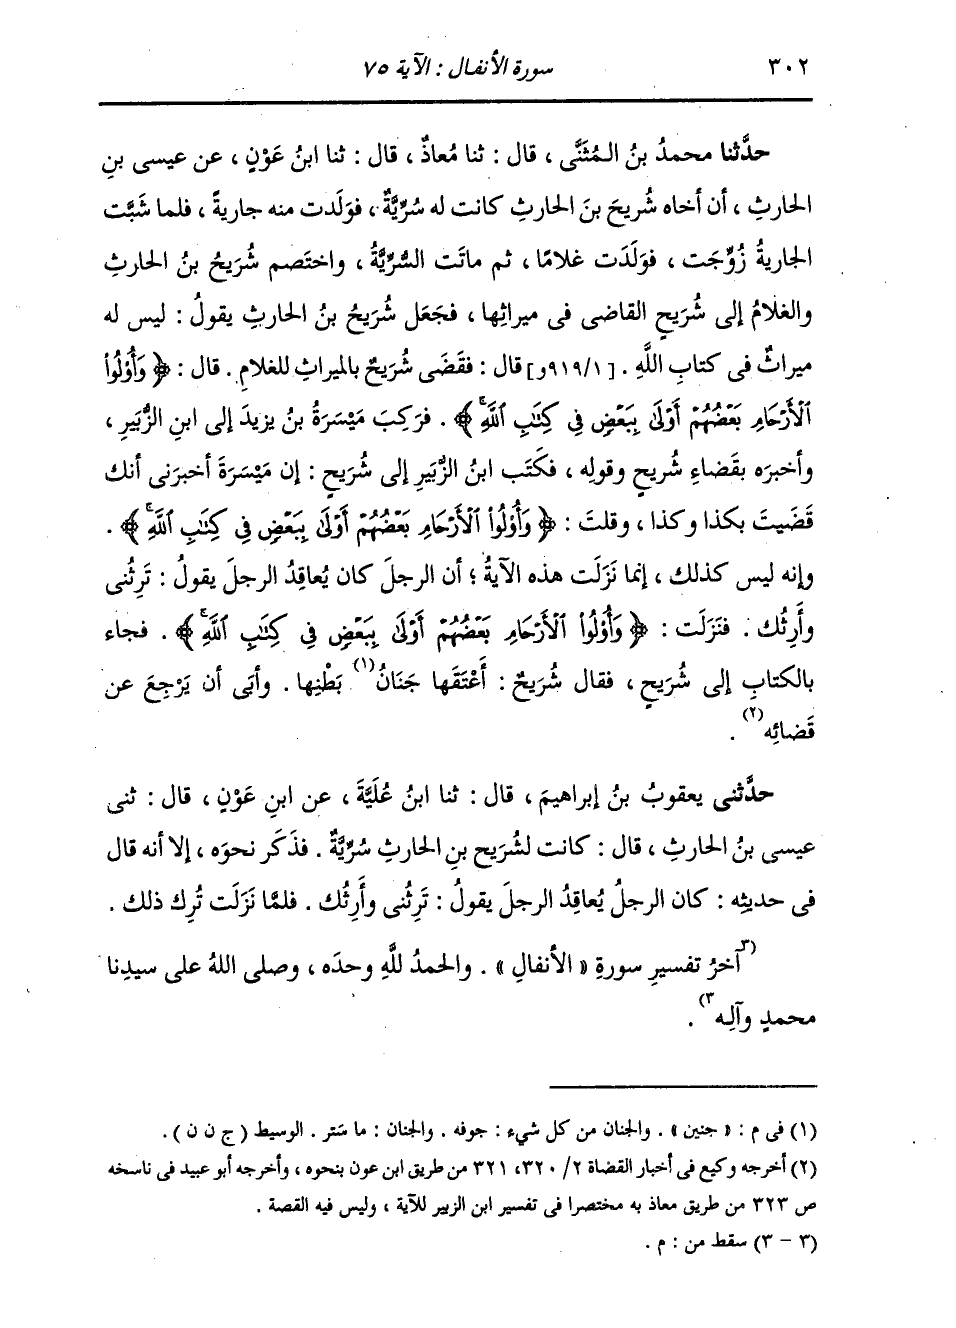 ٣٠٢ سورة الأنفال : الآية ٧٥
حدَّثنا محمدُ بنُ المُثَنَّى ، قال : ثنا مُعاذٌ ، قال : ثنا ابنُ عَوْنٍ ، عن عيسى بنِ
الحارثِ ، أن أخاه شُريحَ بنَ الحارثِ كانت له سُرِّيَّةٌ ، فوَلَدت منه جاريةً ، فلما شَبَّت
الجاريةُ زُوِّجَت ، فوَلَدَت غلامًا ، ثم ماتَت السُّرِّيَّةُ ، واختَصم شُرَيحُ بنُ الحارثِ
والغلامُ إلى شُرَيحٍ القاضى فى ميراثِها ، فجَعَل شُرَيحُ بنُ الحارثِ يقولُ : ليس له
ميراثٌ فى كتابِ اللَّهِ . [٩١٩/١و] قال : فقَضَى شُرَيحٌ بالميراثِ للغلامِ . قال : ﴿ وَأُوْلُواْ
ٱلْأَرْحَامِ بَعْضُهُمْ أَوْلَىٰ بِبَعْضٍ فِي كِتَٰبِ ٱللَّهِۚ ﴾ . فرَكِبَ مَيْسَرَةُ بنُ يزيدَ إلى ابنِ الزُّبَيرِ ،
وأخبرَه بقَضاءِ شُريحٍ وقولِه ، فكَتَب ابنُ الزُّبَيرِ إلى شُرَيحٍ : إن مَيْسَرَةَ أخبرَنى أنك
قَضَيتَ بكذا وكذا ، وقلتَ : ﴿ وَأُوْلُواْ ٱلْأَرْحَامِ بَعْضُهُمْ أَوْلَىٰ بِبَعْضٍ فِي كِتَٰبِ ٱللَّهِۚ ﴾ .
وإنه ليس كذلك ، إنما نَزَلَت هذه الآيةُ ؛ أن الرجلَ كان يُعاقِدُ الرجلَ يقولُ : تَرِثُنى
وأَرِثُك . فنَزَلَت : ﴿ وَأُوْلُواْ ٱلْأَرْحَامِ بَعْضُهُمْ أَوْلَىٰ بِبَعْضٍ فِي كِتَٰبِ ٱللَّهِۚ ﴾ . فجاء
بالكتابِ إلى شُرَيحٍ ، فقال شُرَيحٌ : أَعْتَقَها جَنَانُ(١) بَطْنِها . وأبَى أن يَرْجِعَ عن
قَضائِه(٢) .
حدَّثنى يعقوبُ بنُ إبراهيمَ ، قال : ثنا ابنُ عُلَيَّةَ ، عن ابنِ عَوْنٍ ، قال : ثنى
عيسى بنُ الحارثِ ، قال : كانت لشُرَيحِ بنِ الحارثِ سُرِّيَّةٌ . فذَكَر نحوَه ، إلا أنه قال
فى حديثِه : كان الرجلُ يُعاقِدُ الرجلَ يقولُ : تَرِثُنى وأَرِثُك . فلمَّا نَزَلَت تُرِك ذلك .
(٣آخرُ تفسيرِ سورةِ « الأنفالِ » . والحمدُ للَّهِ وحدَه ، وصلى اللهُ على سيدِنا
محمدٍ وآلِه٣) .
(١) فى م : « جنين » . والجنان من كل شيء : جوفه . والجنان : ما ستر . الوسيط ( ج ن ن ) .
(٢) أخرجه وكيع فى أخبار القضاة ٢/ ٣٢٠، ٣٢١ من طريق ابن عون بنحوه ، وأخرجه أبو عبيد فى ناسخه
ص ٣٢٣ من طريق معاذ به مختصرا فى تفسير ابن الزبير للآية ، وليس فيه القصة .
(٣ - ٣) سقط من : م .